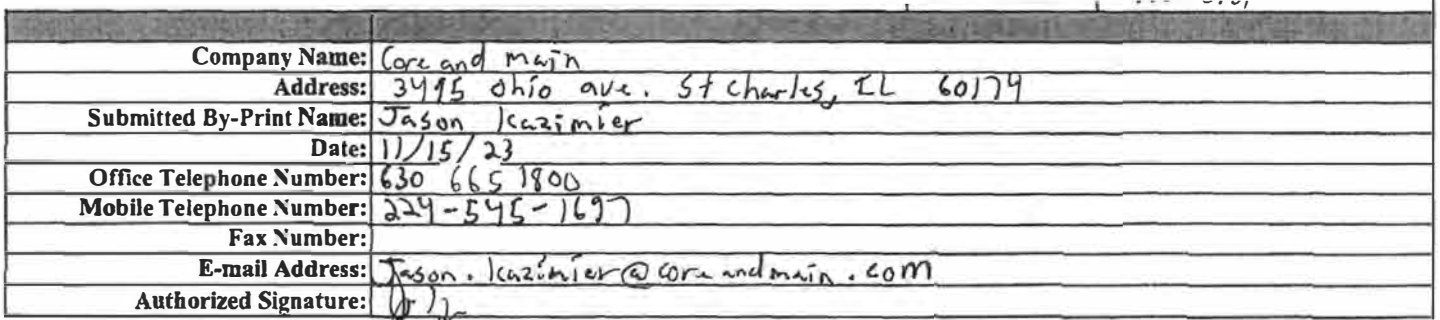 Company Name: Core and main
Address: 3495 Ohio ave. St Charles, IL 60174
Submitted By-Print Name: Jason Kazimier
Date: 11/15/23
Office Telephone Number: 630 665 1800
Mobile Telephone Number: 224-545-1697
Fax Number:
E-mail Address: Jason.Kazimier@coreandmain.com
Authorized Signature: